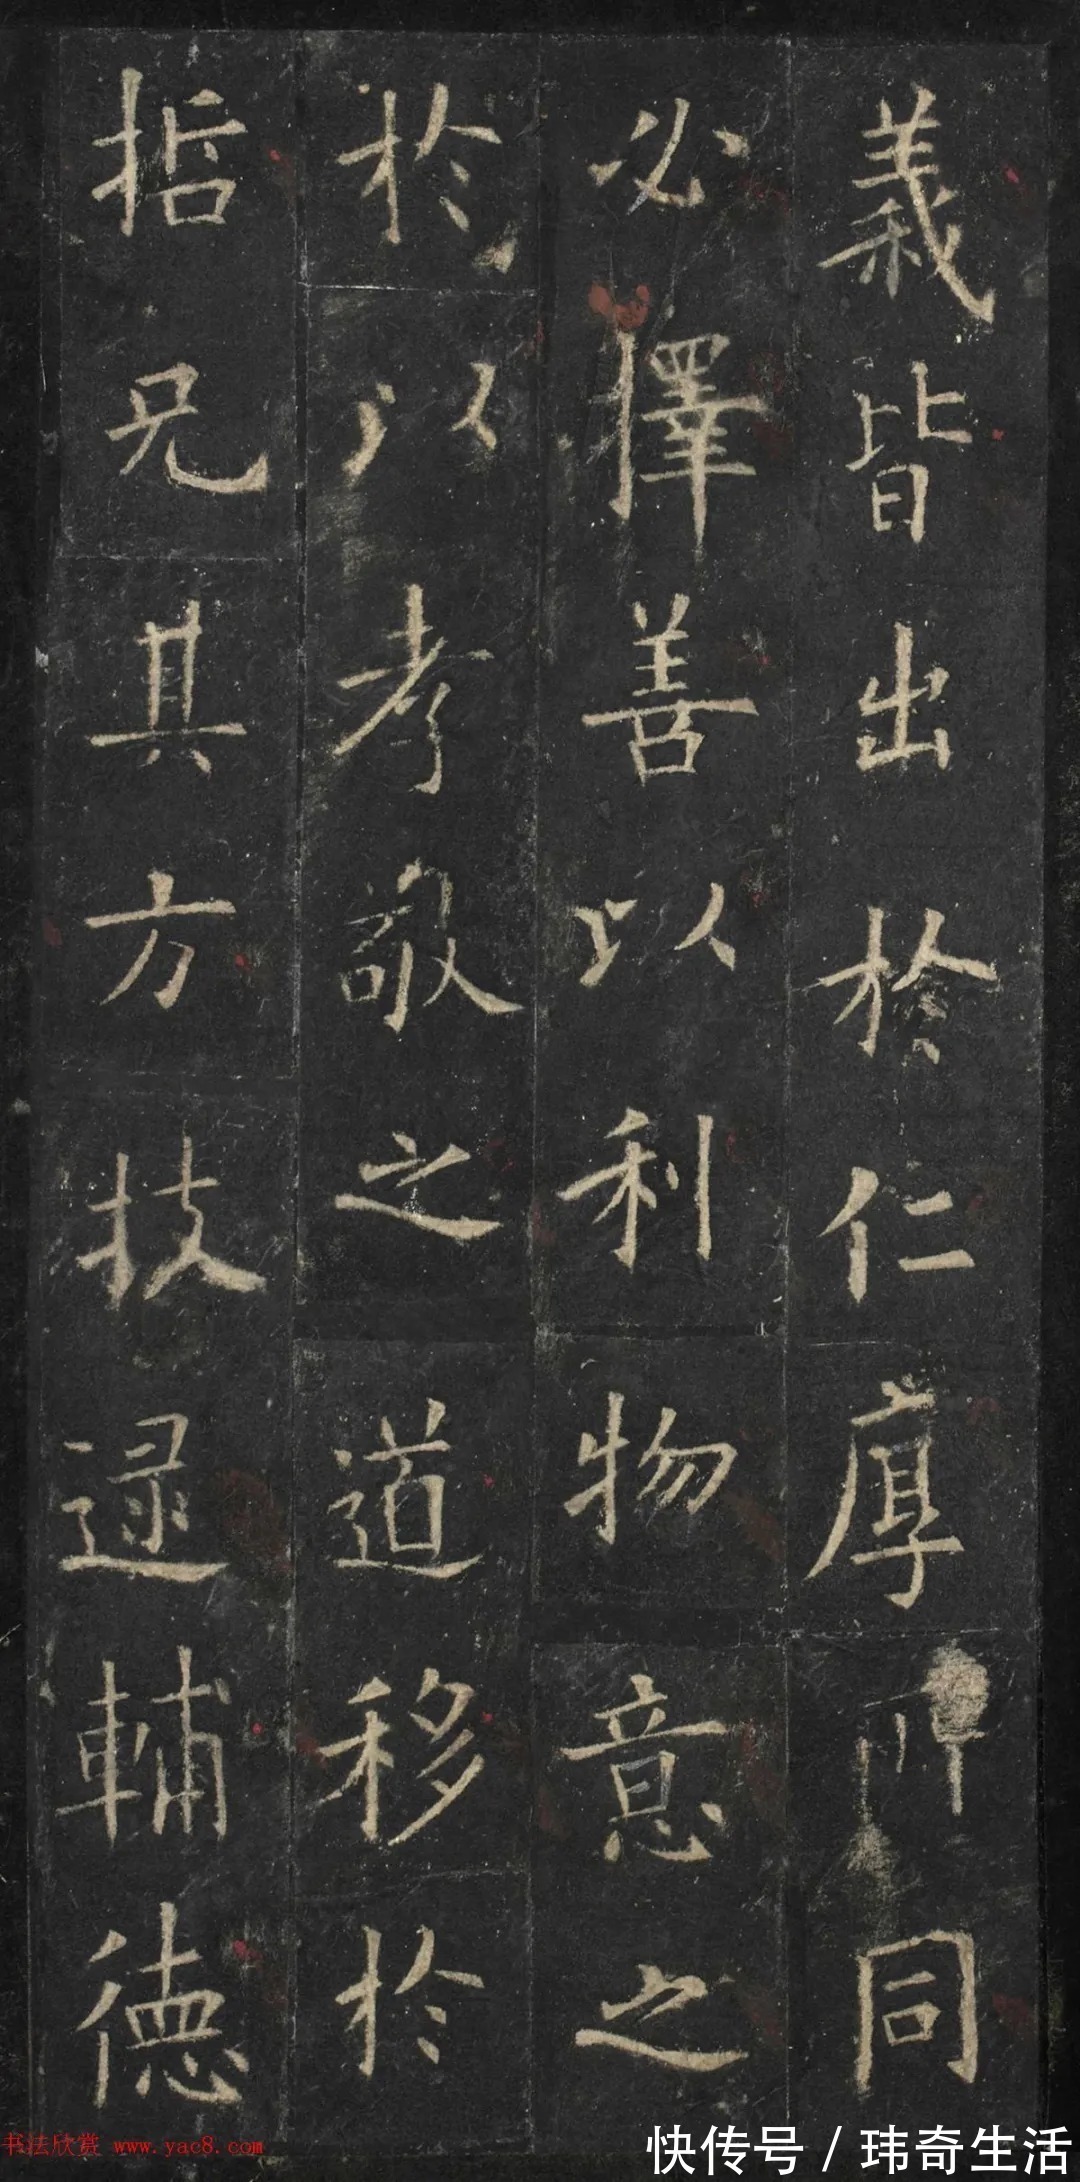 義皆出於仁厚同
必擇善以利物意之
於以孝敬之道移於
哲兄其方技逮輔德
书法欣赏 www.yac8.com
快传号/玮奇生活